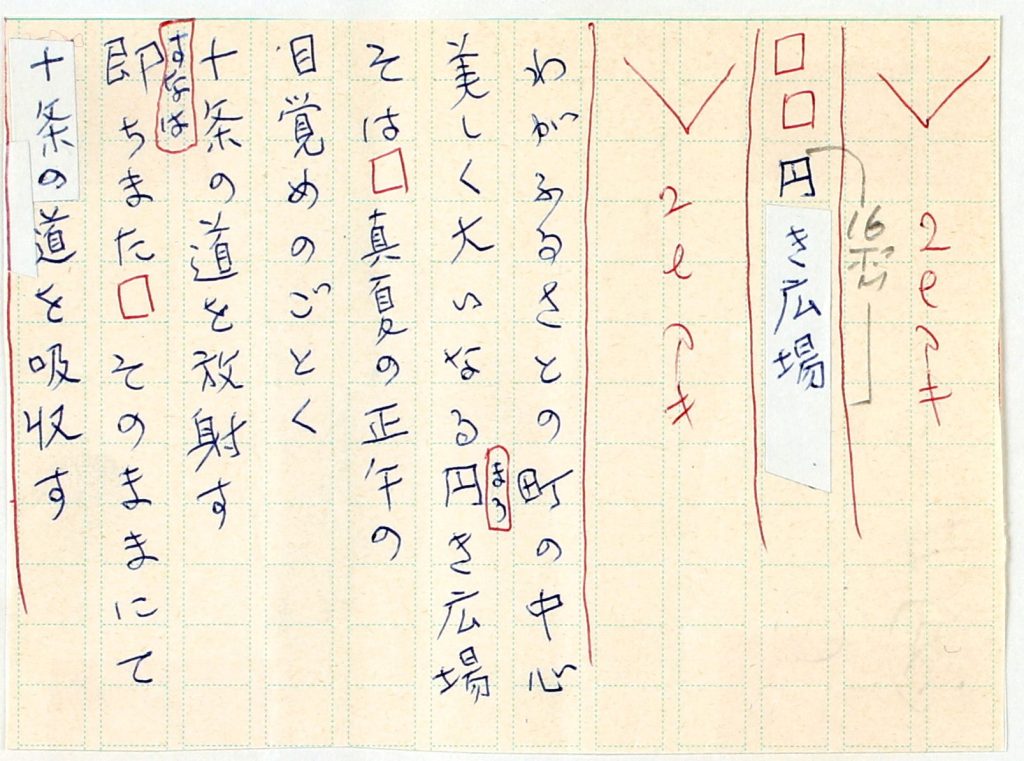 2eアキ
16ポ
□□円き広場
2eアキ
わがふるさとの町の中心
美しく大いなる円き広場
まろ
そは□真夏の正午の
目覚めのごとく
十条の道を放射す
すなは
即ちまた□そのままにて
十条の道を吸収す